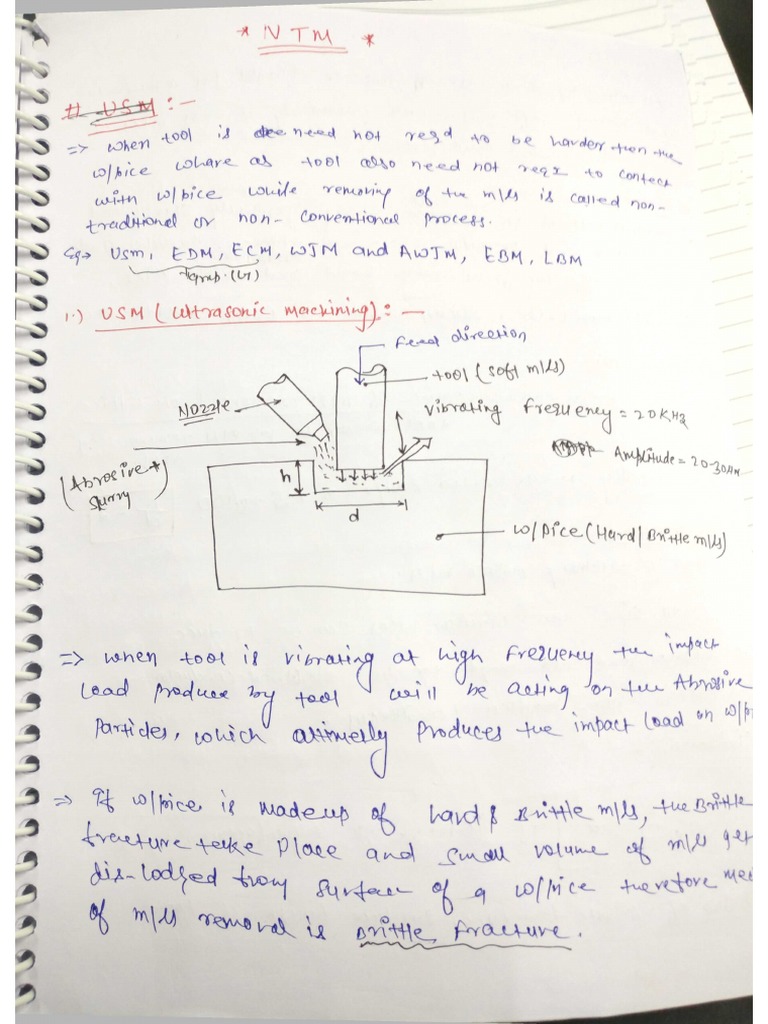 * NTM *
1) USM :-
=> when tool is need not reqd to be harder then the
w/pice whare as tool also need not reqr to contect
with w/pice while removing of the m/ls is called non-
traditional or non-conventional process.
Eg-> Usm, EDM, ECM, WJM and AWJM, EBM, LBM
1.) USM (Ultrasonic machining) :-
Feed direction
tool (soft m/ls)
Nozzle
Vibrating frequency = 20 KHz
Amplitude = 20-30
(Abrosive
slurry)
h
d
w/pice (Hard/Brittle m/ls)
=> when tool is vibrating at high frequency the impact
Load produce by tool will be acting on the Abrosive
Particles, which produces the impact load on
=> If w/pice is madeup of hard & Brittle m/ls, the Brittle
fracture take place and small volume of m/ls
dis-lodged from surface of a w/pice therefore
of m/ls removal is Brittle fracture.